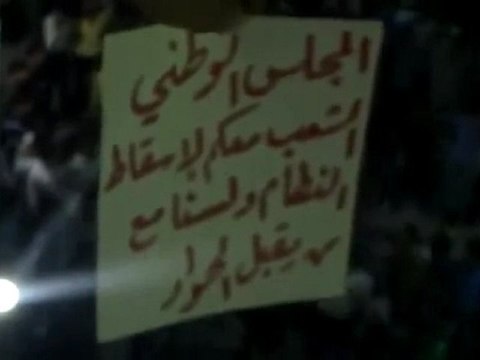 المجلس الوطني
الشعب معكم لإسقاط
النظام ولسنا مع
من يقبل الحوار